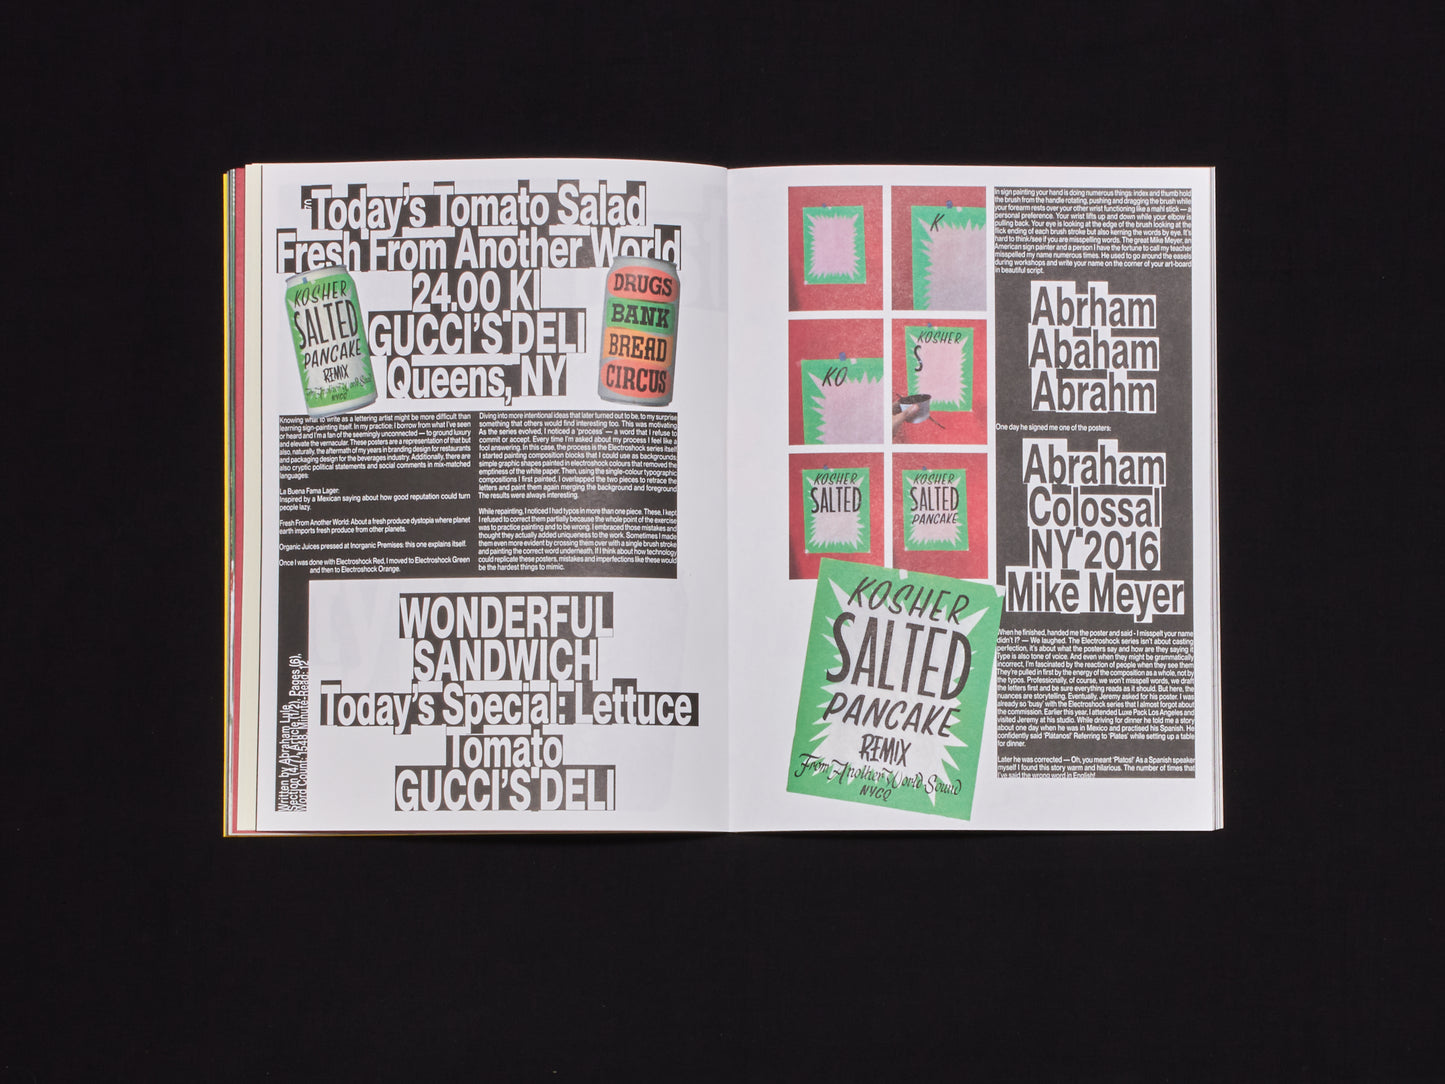 70
Today's Tomato Salad
Fresh From Another World
24.00 KI
GUCCI'S DELI
Queens, NY
KOSHER
SALTED
PANCAKE
REMIX
From Another World Sound
NYCQ
DRUGS
BANK
BREAD
CIRCUS
Knowing what to write as a lettering artist might be more difficult than
learning sign-painting itself. In my practice; I borrow from what I've seen
or heard and I'm a fan of the seemingly unconnected — to ground luxury
and elevate the vernacular. These posters are a representation of that but
also, naturally, the aftermath of my years in branding design for restaurants
and packaging design for the beverages industry. Additionally, there are
also cryptic political statements and social comments in mix-matched
languages:
La Buena Fama Lager:
Inspired by a Mexican saying about how good reputation could turn
people lazy.
Fresh From Another World: About a fresh produce dystopia where planet
earth imports fresh produce from other planets.
Organic Juices pressed at Inorganic Premises: this one explains itself.
Once I was done with Electroshock Red, I moved to Electroshock Green
and then to Electroshock Orange.
Diving into more intentional ideas that later turned out to be, to my surprise
something that others would find interesting too. This was motivating
As the series evolved, I noticed a 'process' — a word that I refuse to
commit or accept. Every time I'm asked about my process I feel like a
fool answering. In this case, the process is the Electroshock series itself
I started painting composition blocks that I could use as backgrounds,
simple graphic shapes painted in electroshock colours that removed the
emptiness of the white paper. Then, using the single-colour typographic
compositions I first painted, I overlapped the two pieces to retrace the
letters and paint them again merging the background and foreground
The results were always interesting.
While repainting, I noticed I had typos in more than one piece. These, I kept
I refused to correct them partially because the whole point of the exercise
was to practice painting and to be wrong. I embraced those mistakes and
thought they actually added uniqueness to the work. Sometimes I made
them even more evident by crossing them over with a single brush stroke
and painting the correct word underneath. If I think about how technology
could replicate these posters, mistakes and imperfections like these would
be the hardest things to mimic.
WONDERFUL
SANDWICH
Today's Special: Lettuce
Tomato
GUCCI'S DELI
Written by Abraham Lule
K
KO
KOSHER
S
KOSHER
SALTED
KOSHER
SALTED
PANCAKE
KOSHER
SALTED
PANCAKE
REMIX
From Another World Sound
NYCQ
In sign painting your hand is doing numerous things: index and thumb hold
the brush from the handle rotating, pushing and dragging the brush while
your forearm rests over your other wrist functioning like a mahl stick — a
personal preference. Your wrist lifts up and down while your elbow is
pulling back. Your eye is looking at the edge of the brush looking at the
flick ending of each brush stroke but also kerning the words by eye. It's
hard to think/see if you are misspelling words. The great Mike Meyer, an
American sign painter and a person I have the fortune to call my teacher
misspelled my name numerous times. He used to go around the easels
during workshops and write your name on the corner of your art-board
in beautiful script.
Abrham
Abaham
Abrahm
One day he signed me one of the posters:
Abraham
Colossal
NY 2016
Mike Meyer
When he finished, handed me the poster and said - I misspelt your name
didn't I? — We laughed. The Electroshock series isn't about casting
perfection, it's about what the posters say and how are they saying it
Type is also tone of voice. And even when they might be grammatically
incorrect, I'm fascinated by the reaction of people when they see them
They're pulled in first by the energy of the composition as a whole, not by
the typos. Professionally, of course, we won't misspell words, we draft
the letters first and be sure everything reads as it should. But here, the
nuances are storytelling. Eventually, Jeremy asked for his poster. I was
already so 'busy' with the Electroshock series that I almost forgot about
the commission. Earlier this year, I attended Luxe Pack Los Angeles and
visited Jeremy at his studio. While driving for dinner he told me a story
about one day when he was in Mexico and practised his Spanish. He
confidently said 'Plátanos!' Referring to 'Plates' while setting up a table
for dinner.
Later he was corrected — Oh, you meant 'Platos!' As a Spanish speaker
myself I found this story warm and hilarious. The number of times that
I've said the wrong word in English!